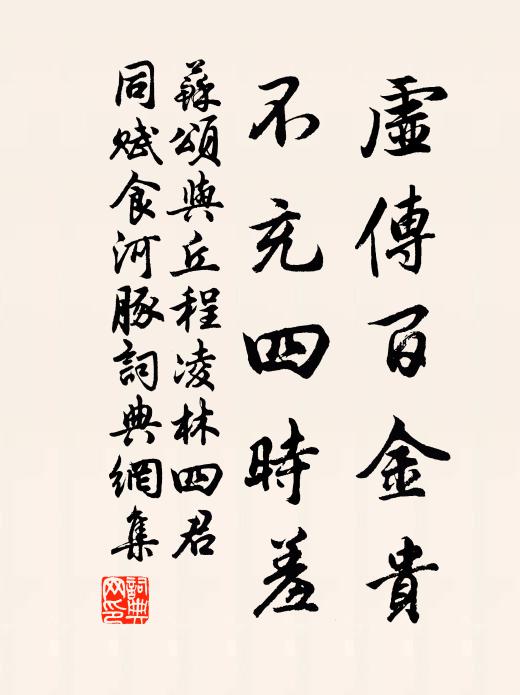 虛傳百金貴
不充四時羞
蘇頌與丘程凌林四君
同賦食河豚詞典網集
詞典
网印